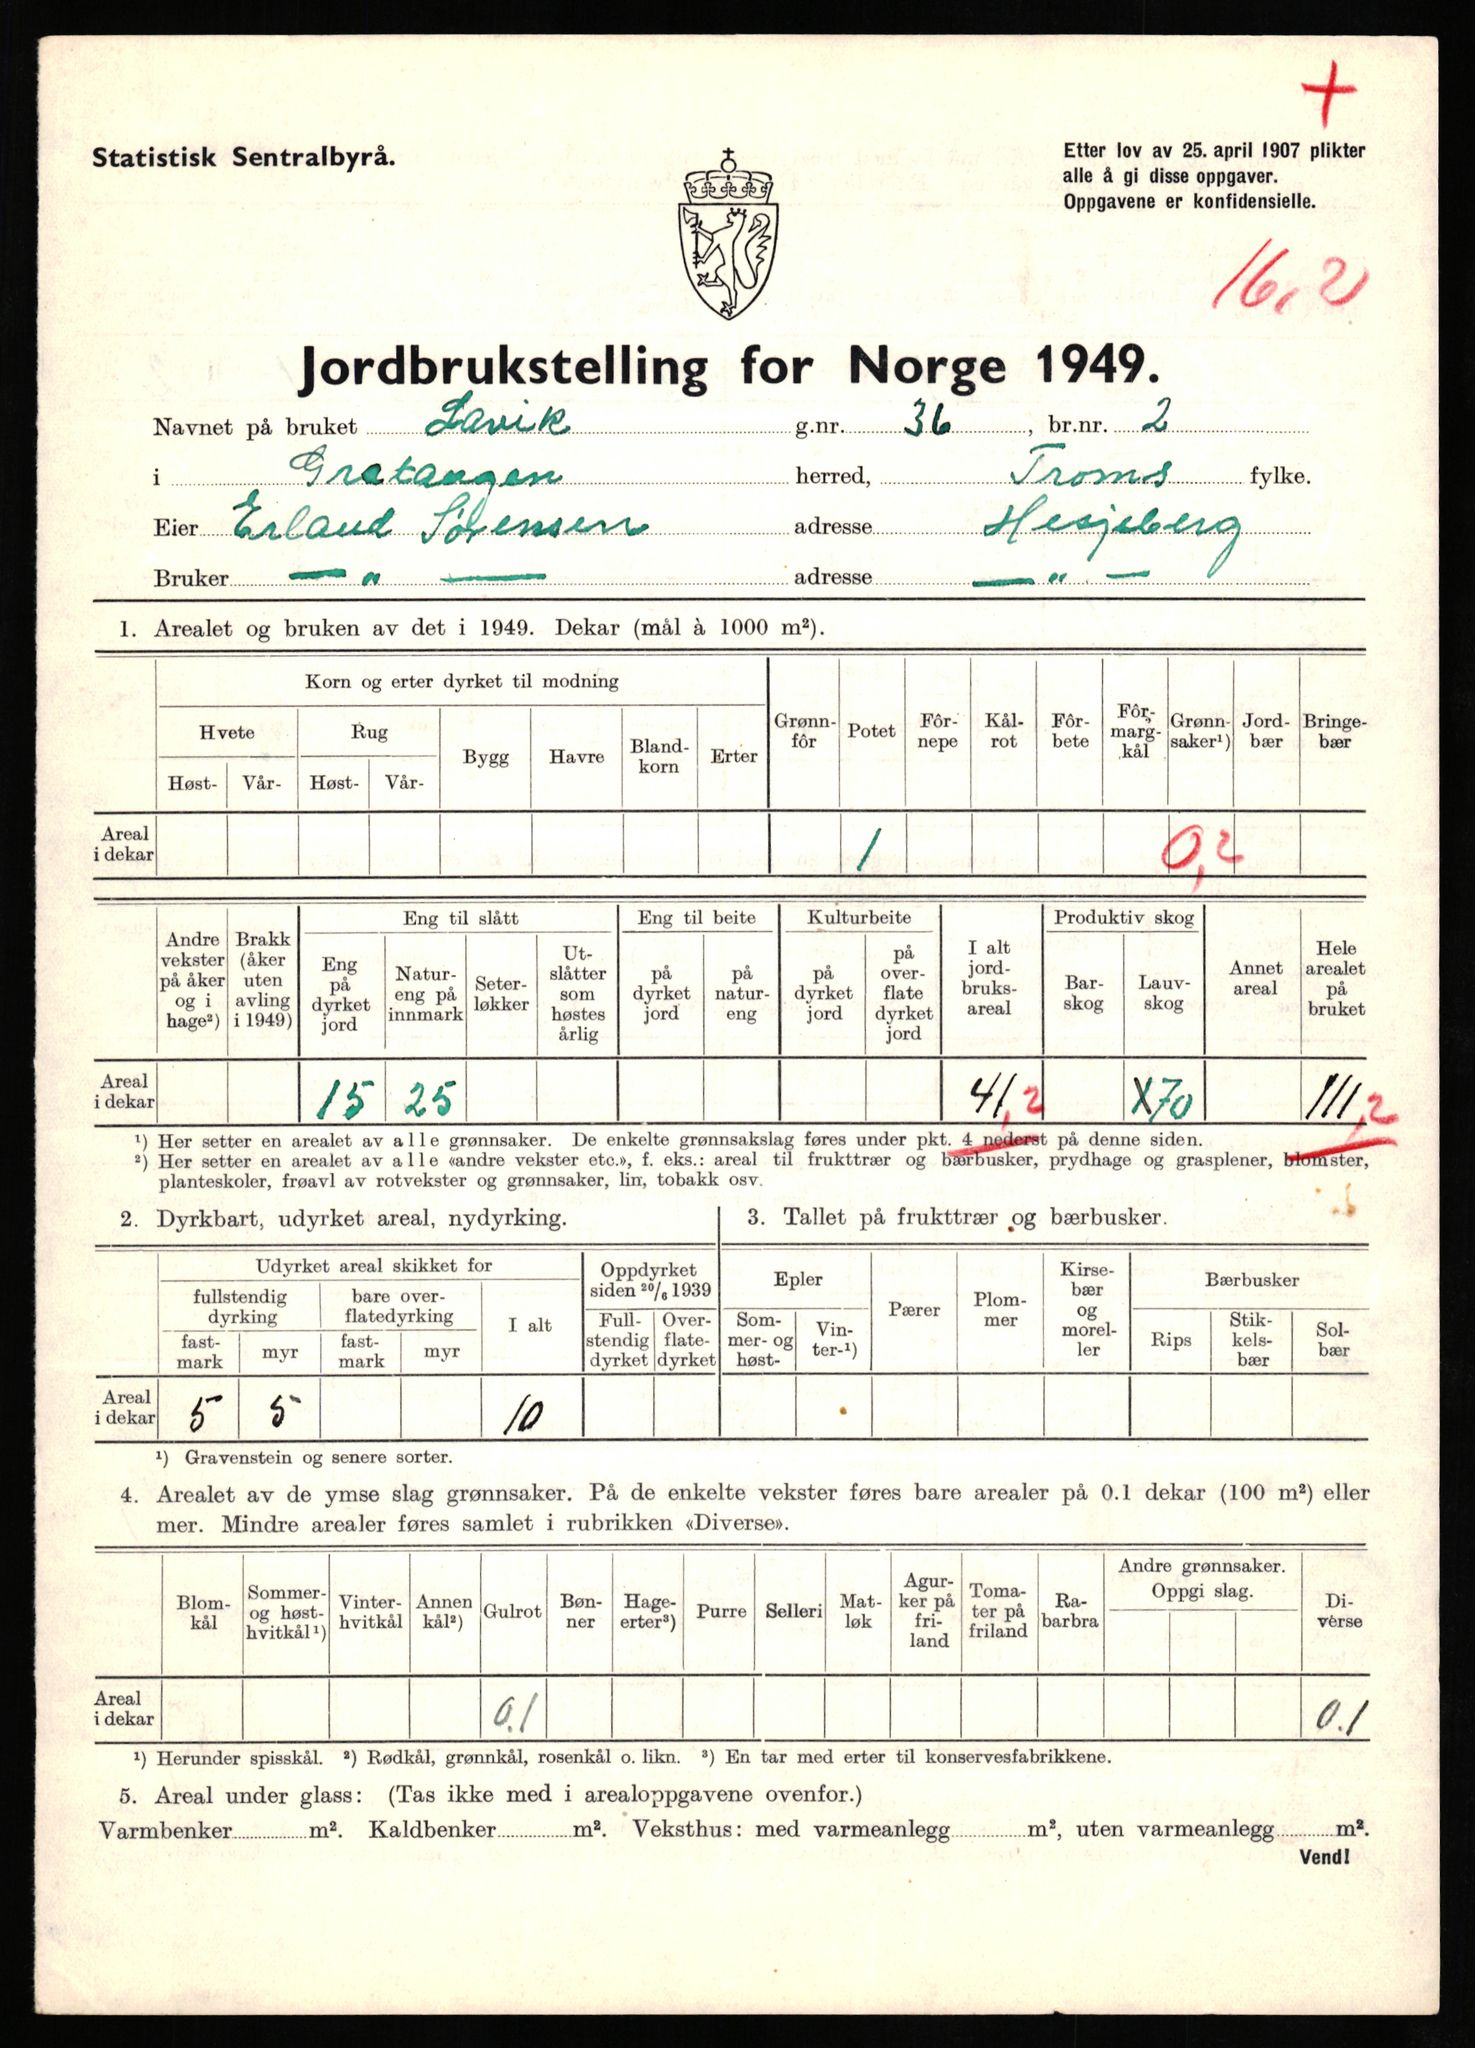 Statistisk Sentralbyrå.
Etter lov av 25. april 1907 plikter
alle å gi disse oppgaver.
Oppgavene er konfidensielle.
16,2
Jordbrukstelling for Norge 1949.
Navnet på bruket Lavik g.nr. 36, br.nr. 2
i Gratangen herred, Troms fylke.
Eier Erland Sørensen adresse Hesjeberg
Bruker — „ — adresse — „ —
1. Arealet og bruken av det i 1949. Dekar (mål à 1000 m²).
Korn og erter dyrket til modning
Hvete Rug Bygg Havre Bland-korn Erter
Høst- Vår- Høst- Vår-
Grønn-fôr Potet Fôr-nepe Kål-rot Fôr-bete Fôr-marg-kål Grønn-saker¹) Jord-bær Bringe-bær
Areal i dekar 1 0,2
Andre vekster på åker og i hage²) Brakk (åker uten avling i 1949)
Eng til slått Eng til beite Kulturbeite Produktiv skog
Eng på dyrket jord Natur-eng på innmark Seter-løkker Ut-slåtter som høstes årlig
på dyrket jord på natur-eng på dyrket jord på over-flate dyrket jord
I alt jord-bruks-areal Bar-skog Lauv-skog Annet areal Hele arealet på bruket
Areal i dekar 15 25 41,2 X70 111,2
¹) Her setter en arealet av alle grønnsaker. De enkelte grønnsakslag føres under pkt. 4 nederst på denne siden.
²) Her setter en arealet av alle «andre vekster etc.», f. eks.: areal til frukttrær og bærbusker, prydhage og grasplener, blomster,
planteskoler, frøavl av rotvekster og grønnsaker, lin, tobakk osv.
2. Dyrkbart, udyrket areal, nydyrking.
Udyrket areal skikket for
fullstendig dyrking bare over-flatedyrking I alt
fast-mark myr fast-mark myr
Oppdyrket siden 20/6 1939
Full-stendig dyrket Over-flate-dyrket
Areal i dekar 5 5 10
3. Tallet på frukttrær og bærbusker.
Epler Pærer Plom-mer Kirse-bær og morel-ler Bærbusker
Som-mer- og høst- Vin-ter-¹) Rips Stik-kels-bær Sol-bær
¹) Gravenstein og senere sorter.
4. Arealet av de ymse slag grønnsaker. På de enkelte vekster føres bare arealer på 0.1 dekar (100 m²) eller
mer. Mindre arealer føres samlet i rubrikken «Diverse».
Blom-kål Sommer- og høst-hvitkål¹) Vinter-hvitkål Annen kål²) Gulrot Bøn-ner Hage-erter³) Purre Selleri Mat-løk Agur-ker på fri-land Toma-ter på friland Ra-barbra Andre grønnsaker. Oppgi slag. Di-verse
Areal i dekar 0.1 0.1
¹) Herunder spisskål. ²) Rødkål, grønnkål, rosenkål o. likn. ³) En tar med erter til konservesfabrikkene.
5. Areal under glass: (Tas ikke med i arealoppgavene ovenfor.)
Varmbenker m². Kaldbenker m². Veksthus: med varmeanlegg m², uten varmeanlegg m².
Vend!